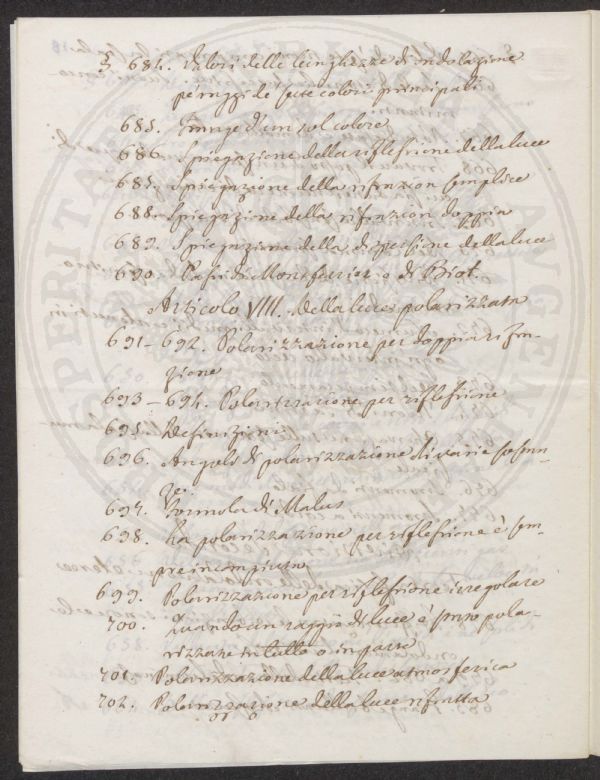 § 684. Valori delle lunghezze di ondolazione
pe' raggi de' sette colori principali
685. Frange d'un sol colore
686. Spiegazione della riflessione della luce
687. Spiegazione della rifrazion semplice
688. Spiegazione della rifrazion doppia
689. Spiegazione della dispersione della luce
690. di Biot.
Articolo VIII. Della luce polarizzata
691 – 692. Polarizzazione per doppia rifra-
zione
693 – 694. Polarizzazione per riflessione
695. Definizioni
696. Angoli di polarizzazione di varie sostan-
ze.
697. Formola di Malus
698. La polarizzazione per riflessione è sem-
pre incompiuta
699. Polarizzazione per riflessione irregolare
700. Quando un raggio di luce è senza pola-
rizzare in tutto o in parte
701. Polarizzazione della luce atmosferica
702. Polarizzazione della luce rifratta